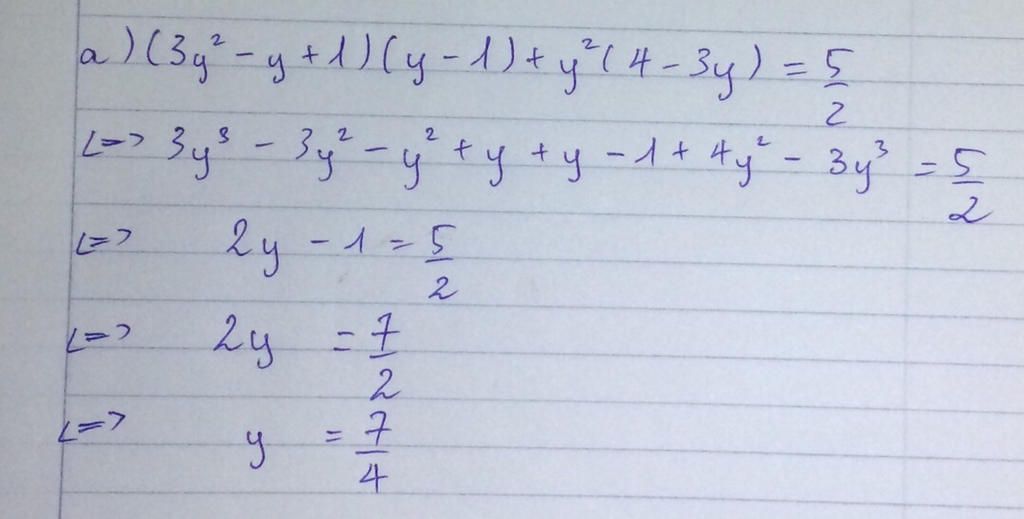 a) (3y² - y + 1)(y - 1) + y²(4 - 3y) = 5/2
<=> 3y³ - 3y² - y² + y + y - 1 + 4y² - 3y³ = 5/2
<=> 2y - 1 = 5/2
<=> 2y = 7/2
<=> y = 7/4